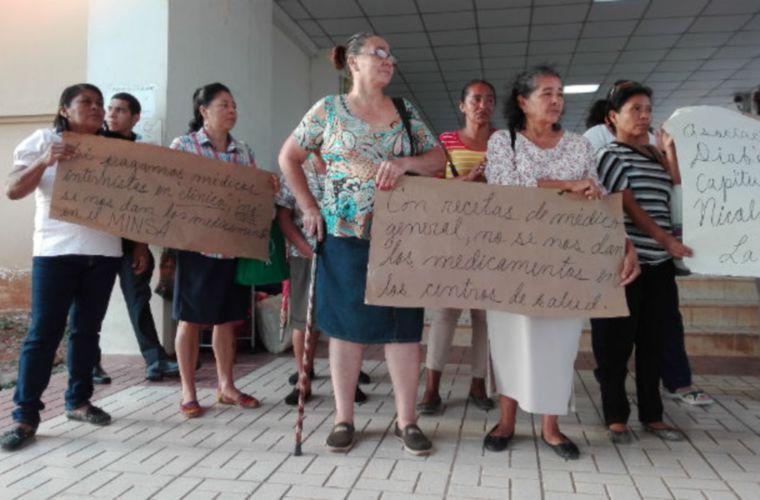 Si pagamos médicos
internistas en "clínica", no
se nos dan los medicamentos
en el MINSA
Con recetas de médico
general, no se nos dan
los medicamentos en
los centros de salud.
Asociac
Diabé
Capítu
Nical
La